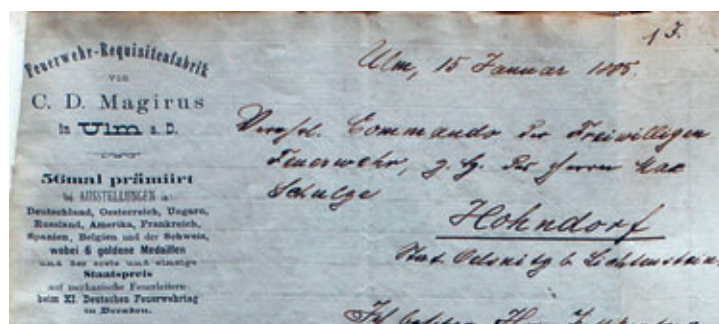 Feuerwehr-Requisitenfabrik
von
C. D. Magirus
in Ulm a. D.
56mal prämiirt
bei AUSSTELLUNGEN in
Deutschland, Oesterreich, Ungarn,
Russland, Amerika, Frankreich,
Spanien, Belgien und der Schweiz,
wobei 6 goldene Medaillen
und der erste und einzige
Staatspreis
auf mechanische Feuerleitern
beim XI. Deutschen Feuerwehrtag
in Dresden.
Ulm, 15 Januar 1885.
Commando der Freiwilligen
Feuerwehr, z. H. des Herrn Max
Schulze
Hohndorf
Stat. Oelsnitz b. Lichtenstein.